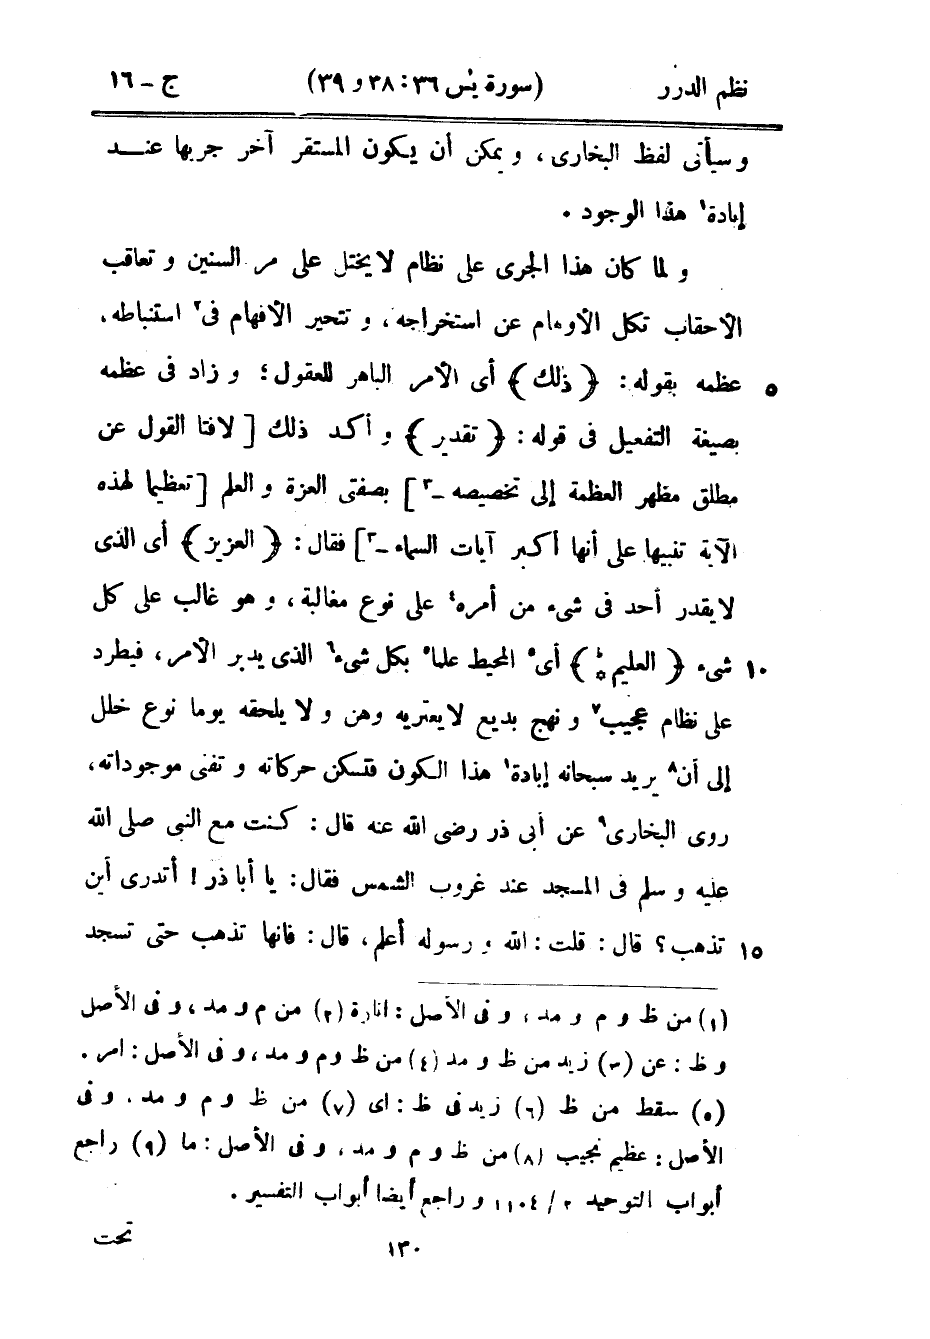 نظم الدرر (سورة يٰس ٣٦: ٣٨ و ٣٩) ج - ١٦
و سيأتى لفظ البخارى، و يمكن أن يكون المستقر آخر جريها عنـــد
إبادة١ هذا الوجود .
و لما كان هذا الجرى على نظام لا يختل على مر السنين و تعاقب
الأحقاب تكل الأوهام عن استخراجه، و تتحير الأفهام فى٢ استنباطه،
٥ عظمه بقوله: ﴿ ذلك ﴾ أى الأمر الباهر للعقول؛ و زاد فى عظمه
بصيغة التفعيل فى قوله: ﴿ تقدير ﴾ و أكد ذلك [ لافتا القول عن
مطلق مظهر العظمة إلى تخصيصه -٣ ] بصفتى العزة و العلم [ تعظيما لهذه
الآية تنبيها على أنها أكبر آيات السماء -٣ ] فقال: ﴿ العزيز ﴾ أى الذى
لا يقدر أحد فى شىء من أمره٤ على نوع مغالبة، و هو غالب على كل
١٠ شىء ﴿ العليم ۞ؕ ﴾ أى٥ المحيط علما٥ بكل شىء٦ الذى يدبر الأمر، فيطرد
على نظام عجيب٧ و نهج بديع لا يعتريه وهن و لا يلحقه يوما نوع خلل
إلى أن٨ يريد سبحانه إبادة١ هذا الكون فتسكن حركاته و تفنى موجوداته،
روى البخارى٩ عن أبى ذر رضى الله عنه قال: كنت مع النبى صلى الله
عليه و سلم فى المسجد عند غروب الشمس فقال: يا أبا ذر ! أتدرى أين
١٥ تذهب؟ قال: قلت: الله و رسوله أعلم، قال: فانها تذهب حتى تسجد
(١) من ظ و م و مد، و فى الأصل: انارة (٢) من م و مد، و فى الأصل
و ظ: عن (٣) زيد من ظ و مد (٤) من ظ و م و مد، و فى الأصل: امر .
(٥) سقط من ظ (٦) زيد فى ظ: اى (٧) من ظ و م و مد، و فى
الأصل: عظيم نجيب (٨) من ظ و م و مد، و فى الأصل: ما (٩) راجع
أبواب التوحيد ٢ / ١١٠٤ و راجع أيضا أبواب التفسير .
١٣٠ تحت